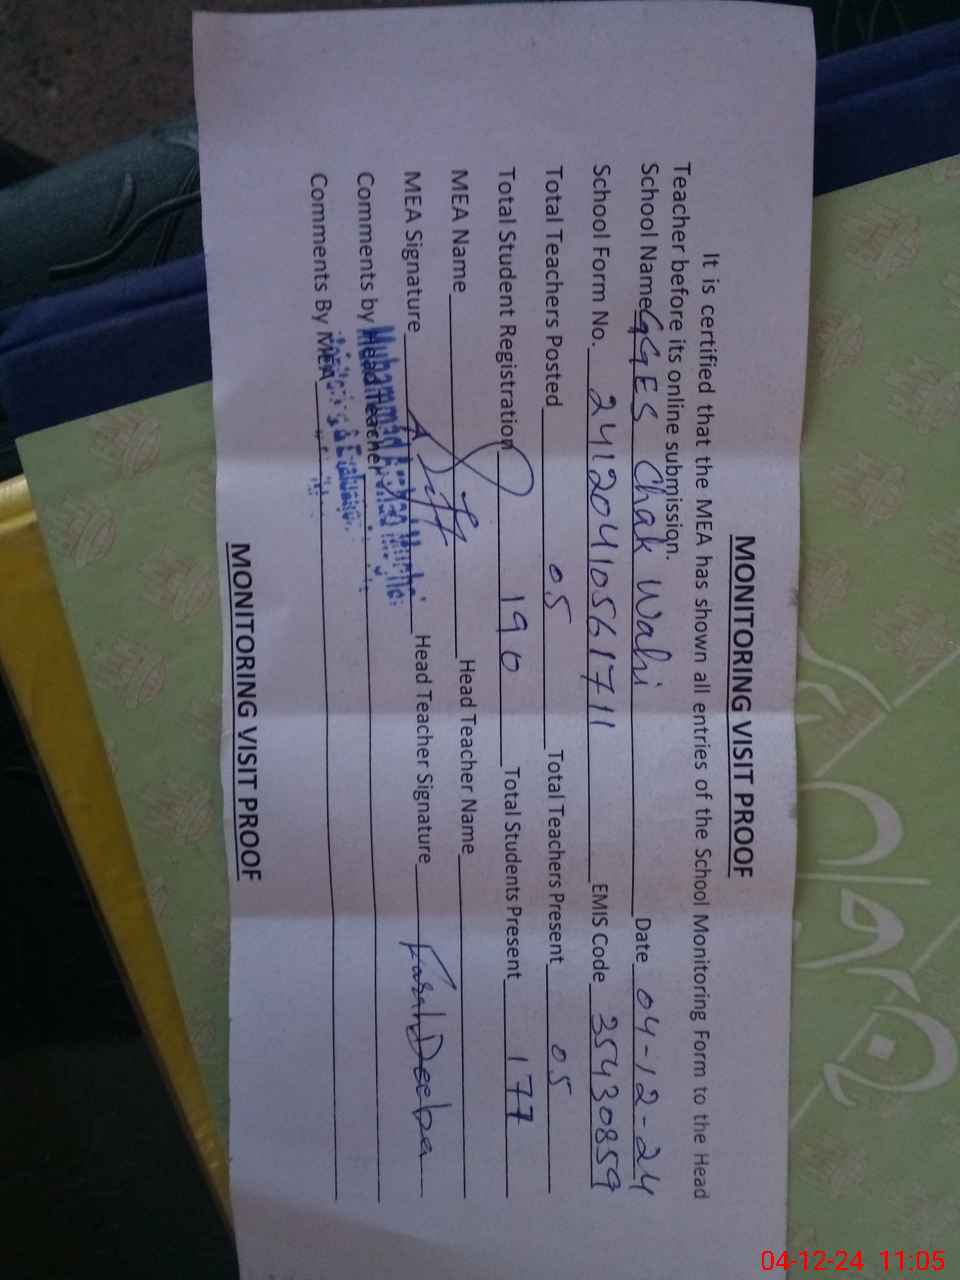 MONITORING VISIT PROOF
It is certified that the MEA has shown all entries of the School Monitoring Form to the Head
Teacher before its online submission.
School Name GGES Chak Wahi Date 04-12-24
School Form No. 24120410561711 EMIS Code 35430859
Total Teachers Posted 05 Total Teachers Present 05
Total Student Registration 190 Total Students Present 177
MEA Name Head Teacher Name
MEA Signature Head Teacher Signature Farah Deeba
Comments by Head Teacher
Muhammad
Comments By MEA
MONITORING VISIT PROOF
04-12-24 11:05